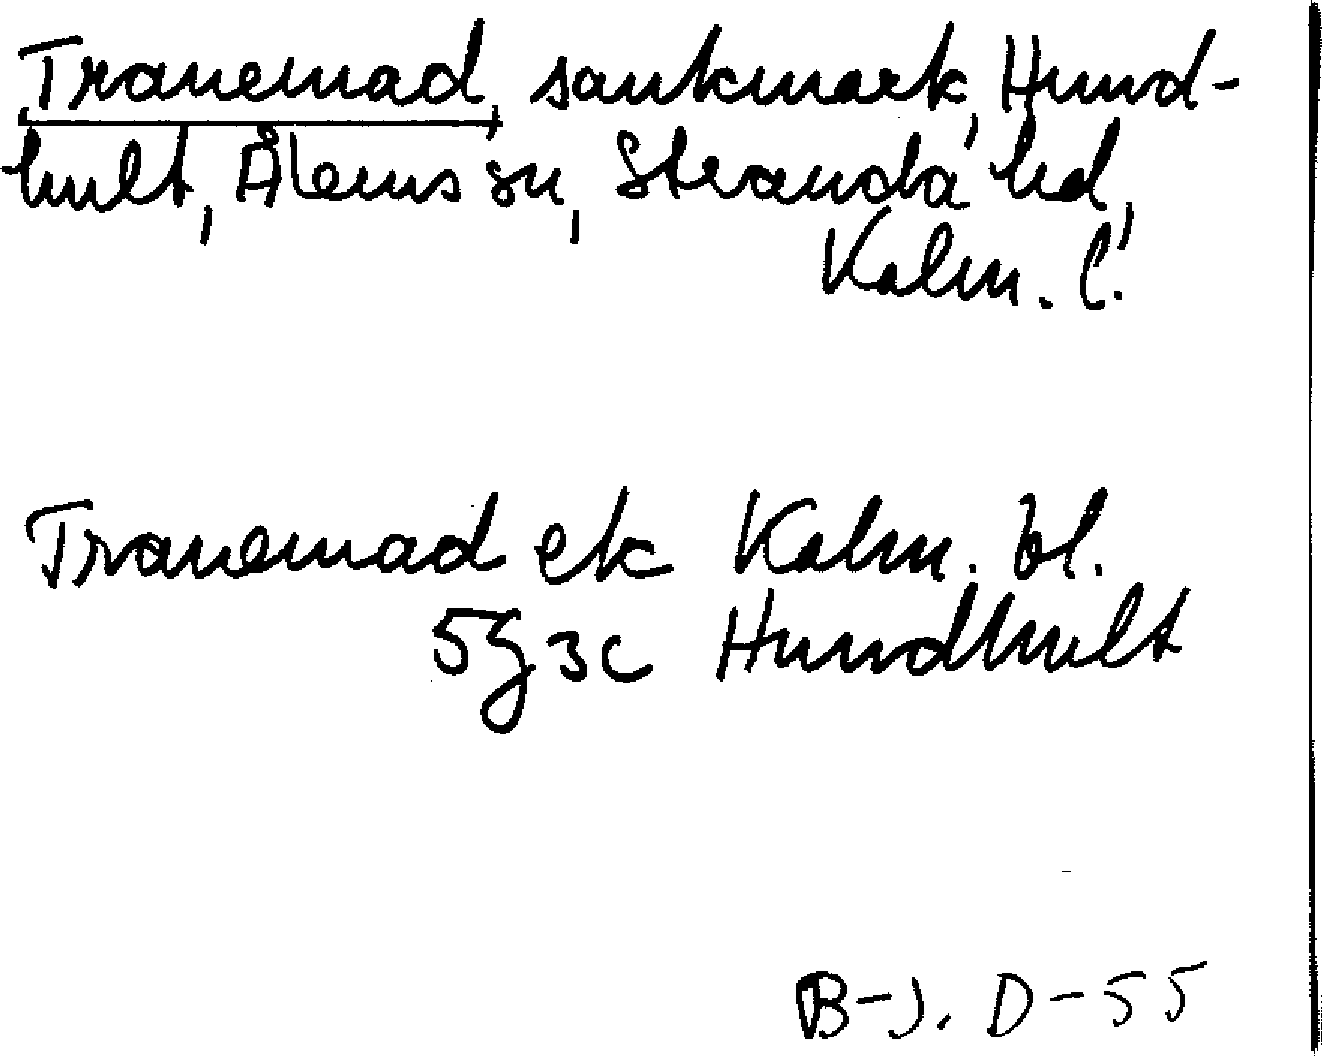 Tranemad, sankmark, Hund-
hult, Ålems sn, Stranda hd,
Kalm. l.
Tranemad ek Kalm. bl.
5g3c Hundhult
B-J. D-55